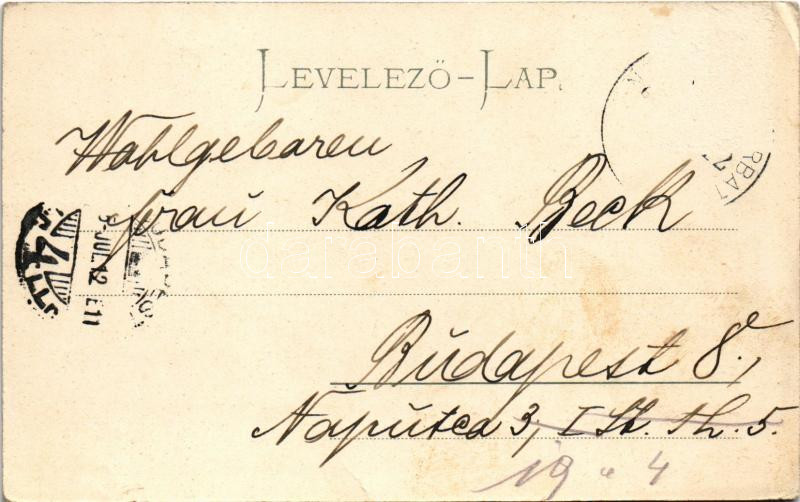 LEVELEZŐ-LAP.
Wohlgeboren
Frau Kath. Beck
Budapest 8.,
Naputca 3, I St. Th. 5.
RBAT
4
JUL. 12
E11
darabanth